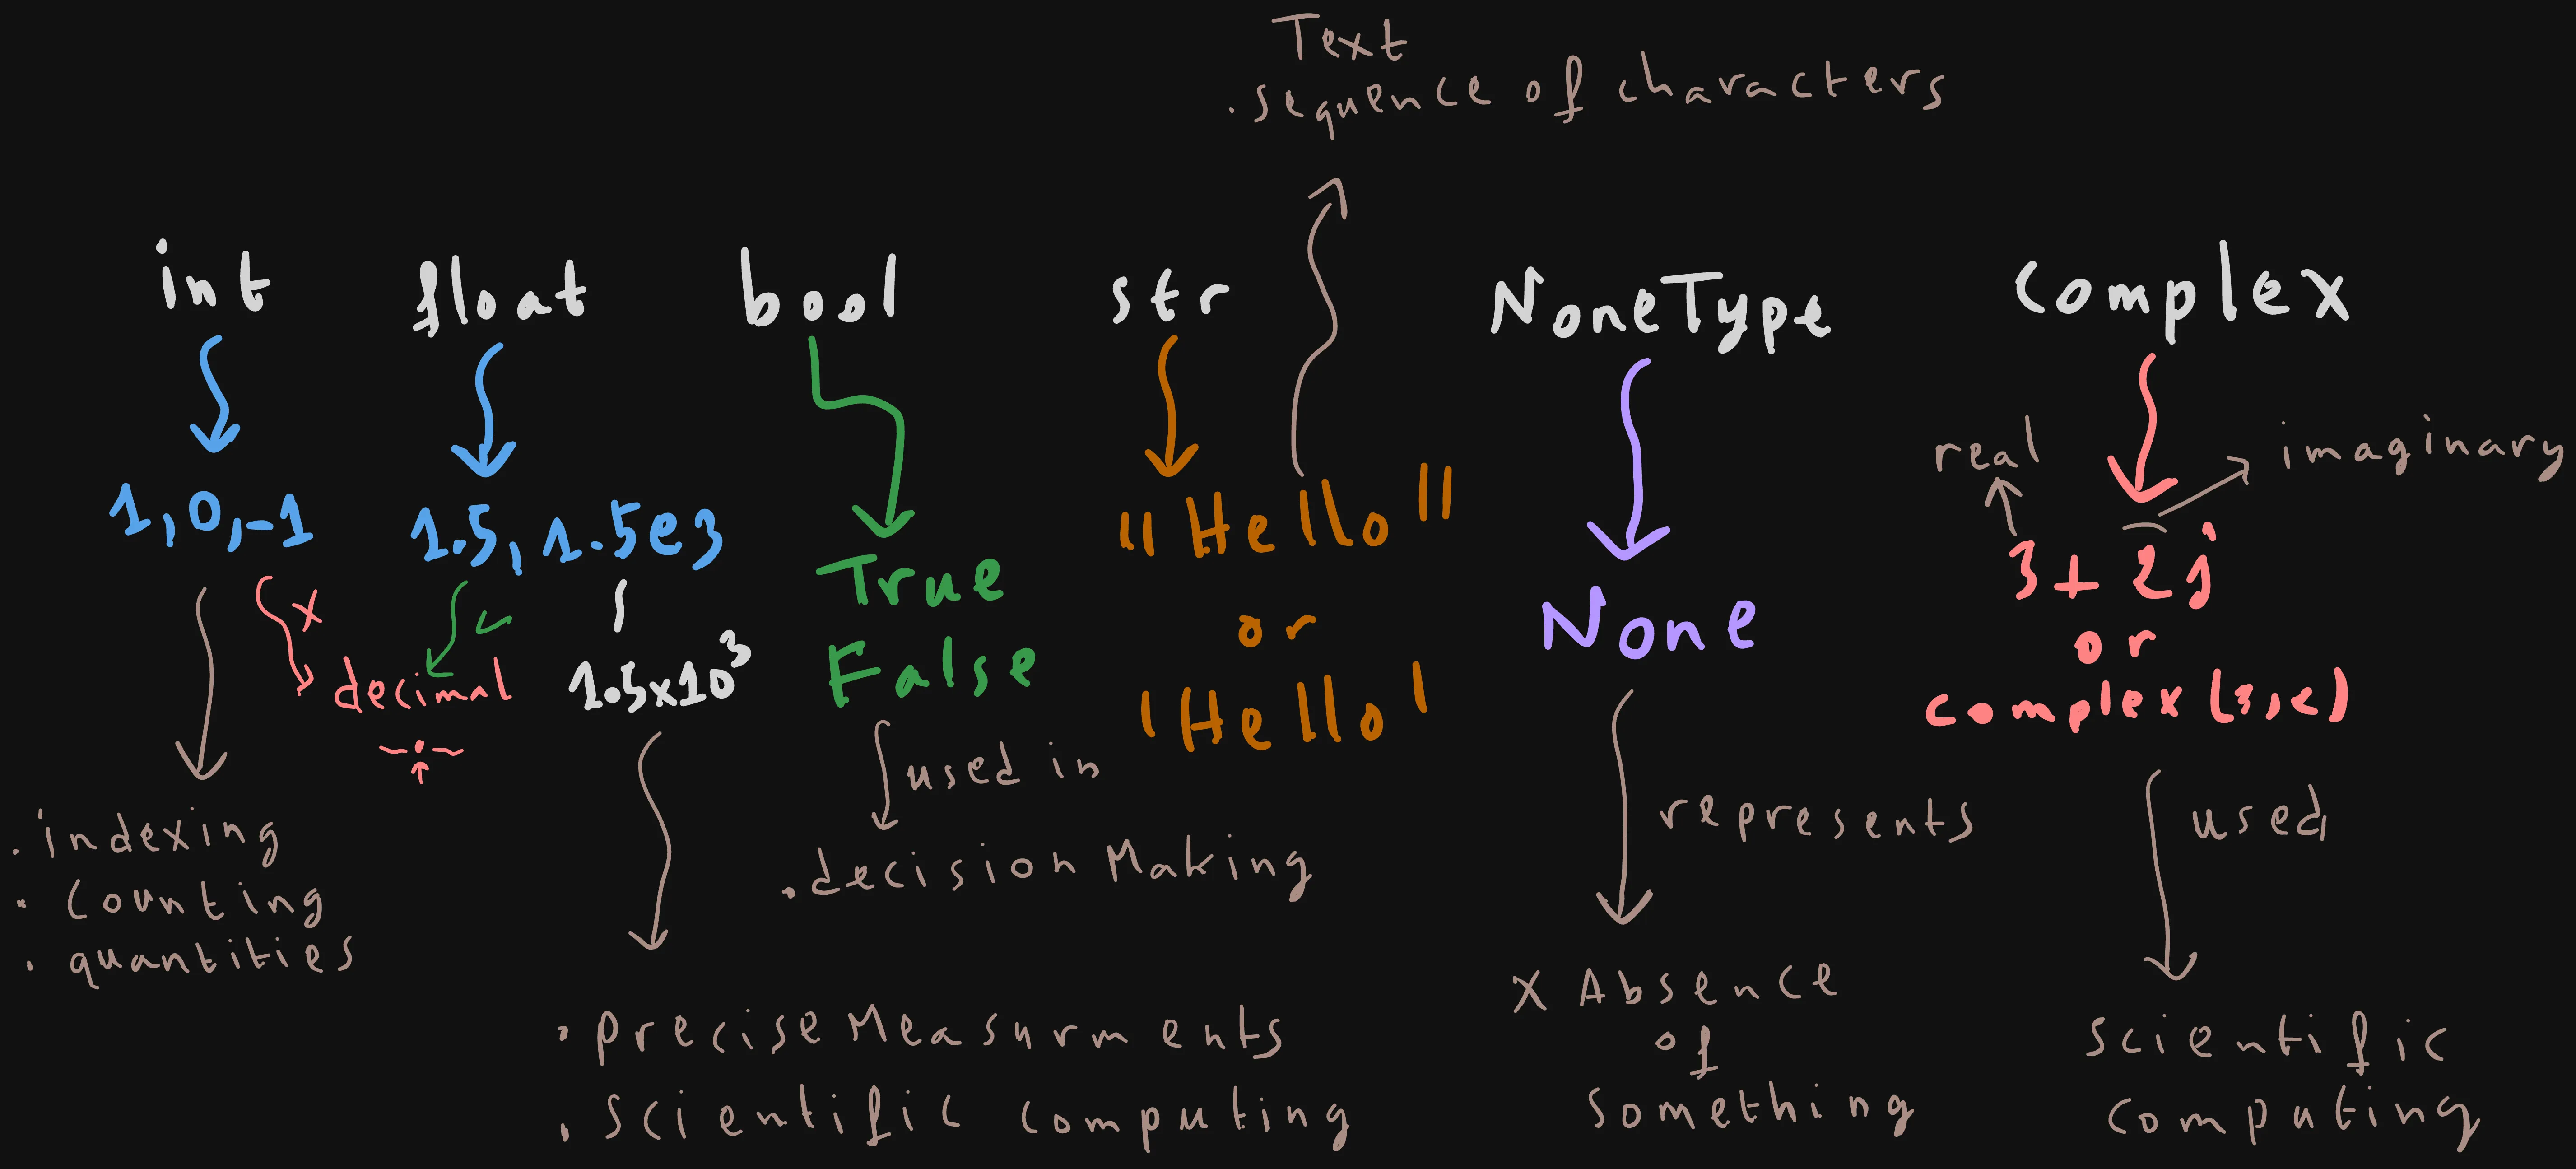 Text
. sequence of characters
int
float
bool
str
NoneType
complex
real
imaginary
1,0,-1
1.5, 1.5e3
True
False
"Hello"
or
'Hello'
None
3+2j
or
complex(3,2)
x
decimal
1.5x10³
used in
. decision Making
represents
used
. indexing
. counting
. quantities
. precise Measurments
. scientific computing
X Absence
of
something
scientific
computing